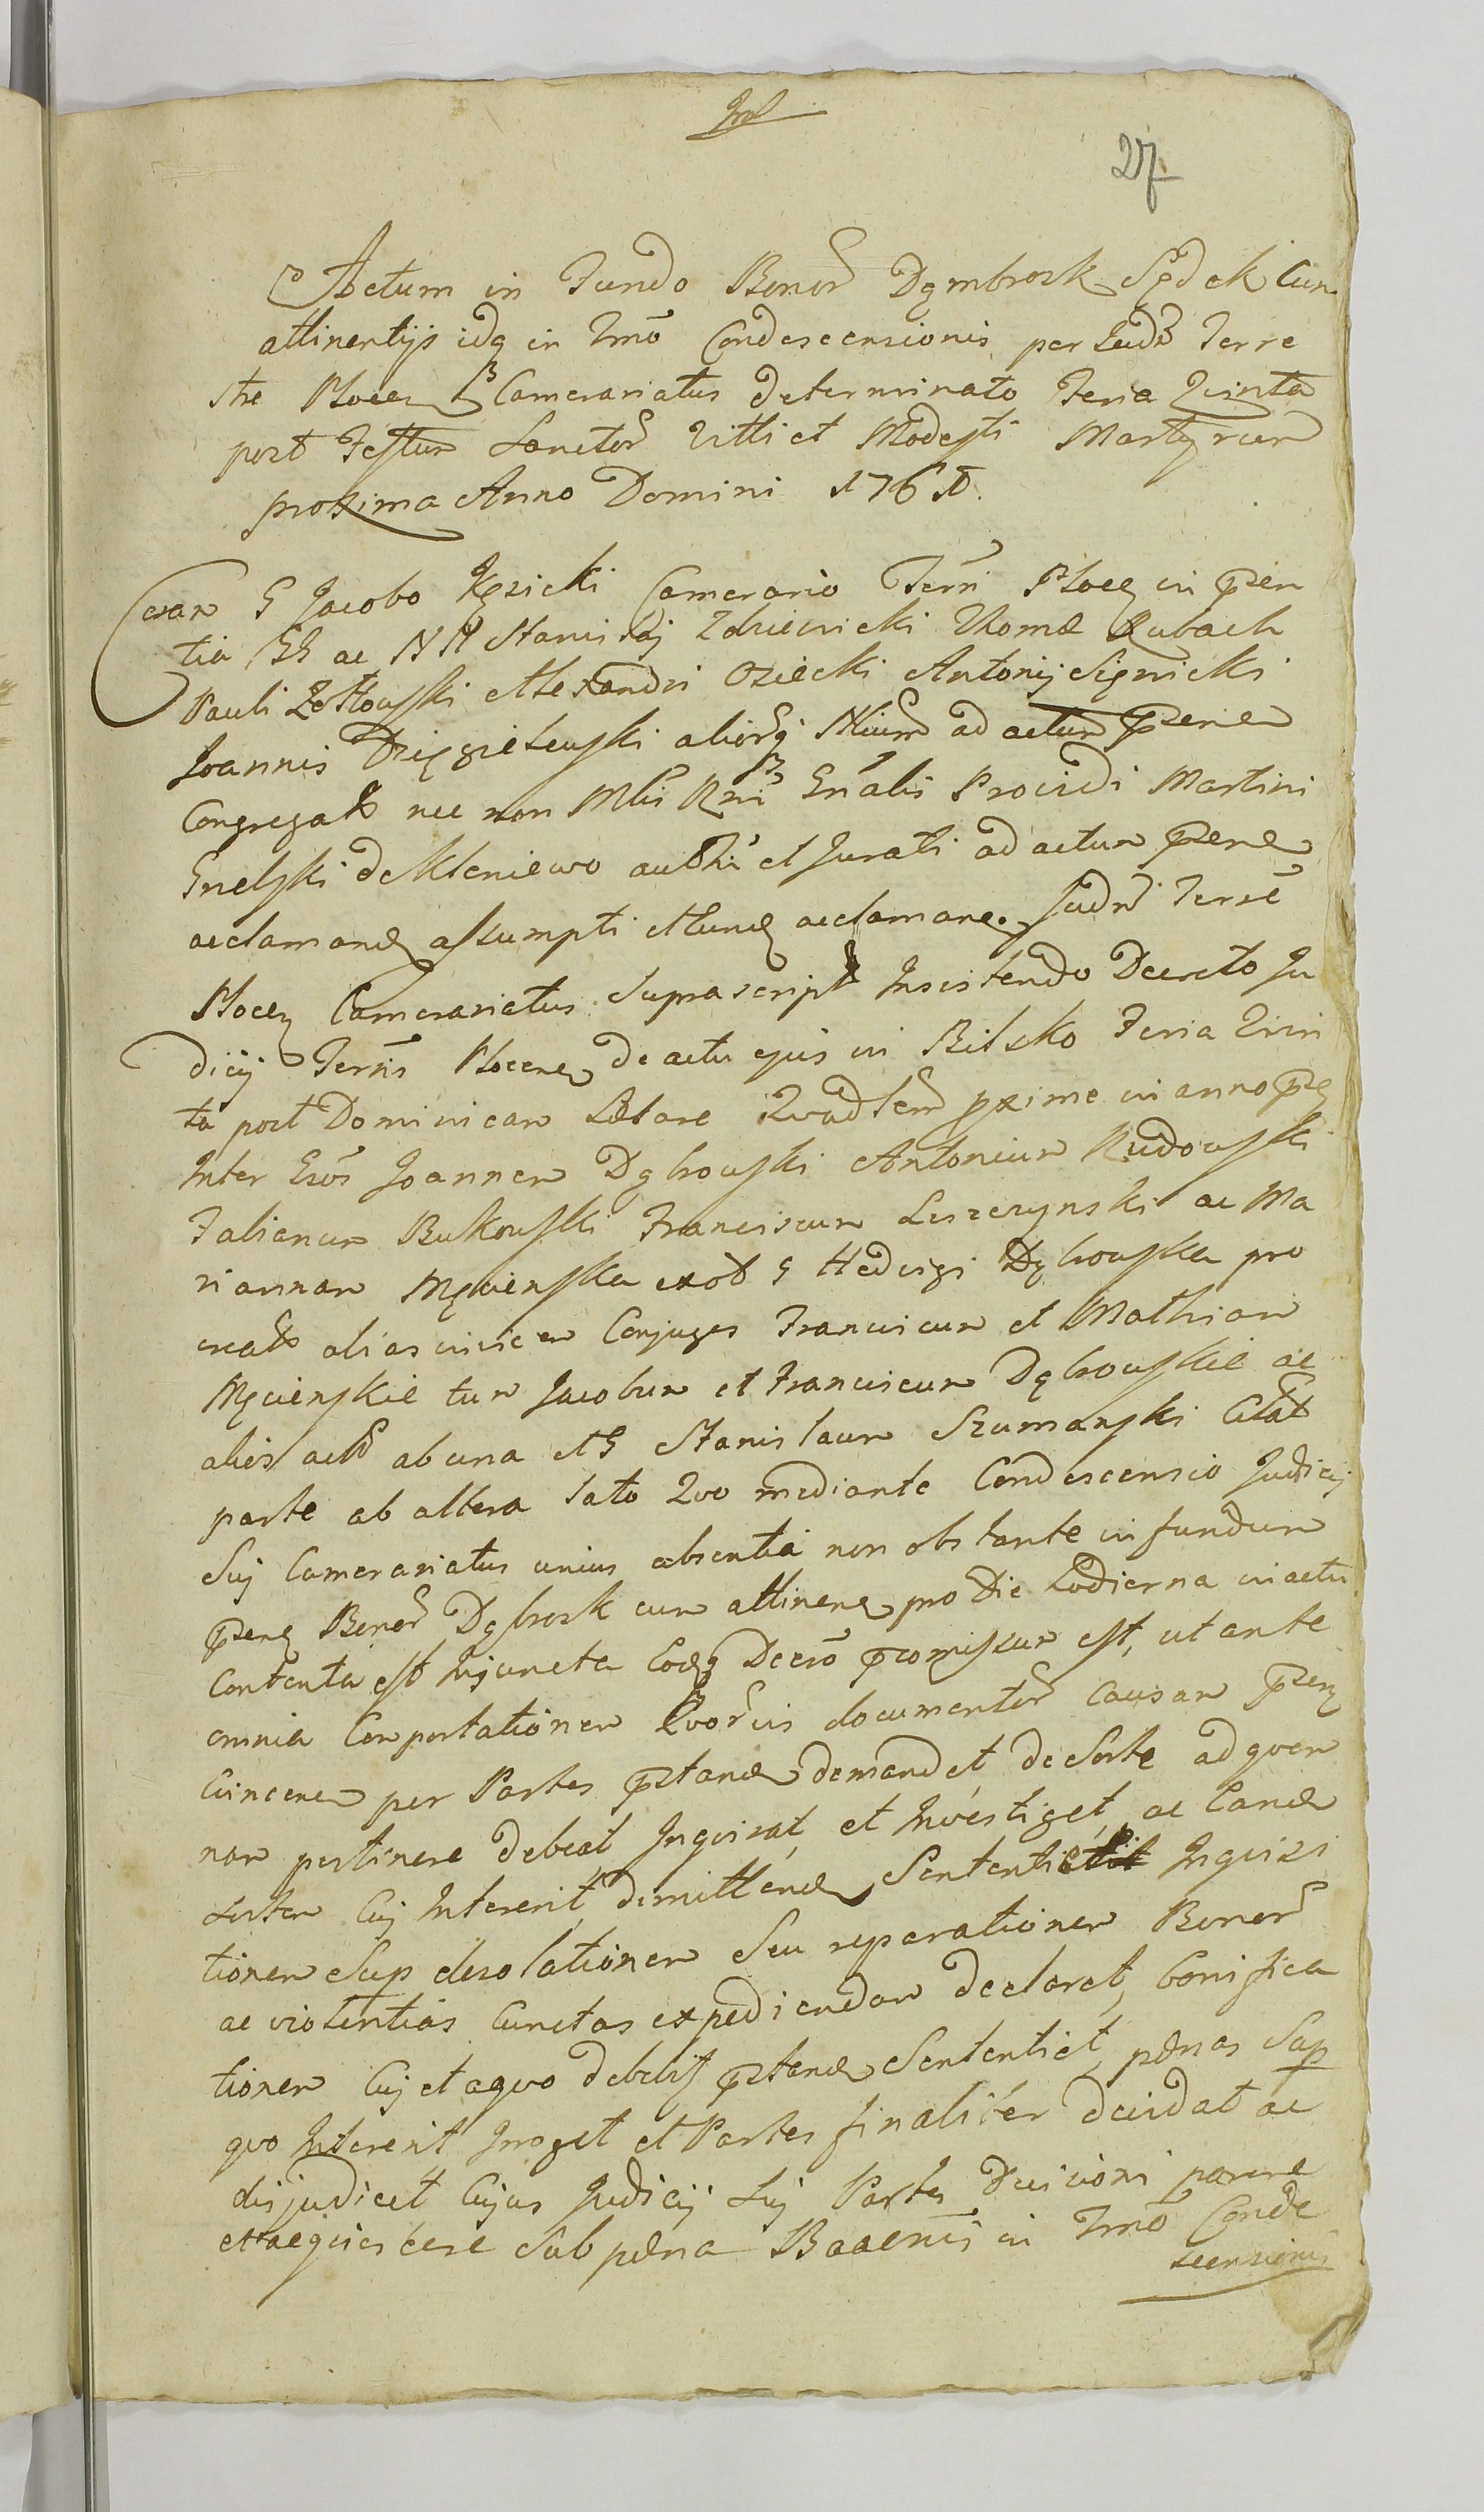 27
Actum in Fundo Bonor Dąmbrosk Sądek Cum
attinentijs idq in Tmo Condescensionis per Judm Terre
stre Plocen Camerariatus determinato Feria Quinta
post Festum Sanctor Vitti et Modesti Martyrum
proxima Anno Domini
Coram G Jacobo Kęsicki Camerario Terri Plocen in pren
tia GG ac NN Stanislaj Zdziewicki Thomæ Rubach
Pauli Zottowski Alexandri Osiecki Antonij Signicki
Joannis Dzięgielewski aliorq Nlium ad actum præsen
Congregat nec non Mlis Rni Gnalis Providi Martini
Gnelski de Kleniewo authi et Jurati ad actum præsen
acclamand assumpti Actumq acclamane Judm Terre
Plocen Camerariatus Suprascript Insistendo Decreto Ju
dicij Terris Plocen de actu ejus in Bilsko Feria Quin
ta post Dominicam Lætare Quadlem pxime in anno præ
Inter Gsos Joannem Dąbrowski Antonium Rudowski
Fabianum Bukowski Franciscum Leszczynski ac Ma
riannam Mąwienska exot G Hedvigi Dąbrowska pro
creat alias invicem Conjuges Franciscum et Mathiam
Mąwienskie tum Jacobum et Franciscum Dąbrowskie ac
alios act ab una et G Stanislaum Szumanski Citat
parte ab altera lato Quo mediante Condescensio Judicij
Sui Camerariatus unius absentia non obstante in fundum
præsen Bonor Dąbrosk cum attinen pro Die hodierna in actu
Contenta est Injuncta Eodq Decro præmissum est, ut ante
omnia Comportationem Quorvis documentor Causam præsen
Cincen per Partes præstand demandet, de Sorte ad quem
nam pertinere debeat Inquirat, et Investiget, ac Eand
Sortem Cuj Intererit, dimittend Sententiet Inquisi
tionem Sup desolationem Seu reparationem Bonor
ac violentias Cunctas expediendam declaret, bonifica
tionem Cuj et a quo debebit præstand Sententiet, pænas Sup
quo Intererit Irroget et Partes finaliter decidat ac
disjudicet Cujus Judicij Suj Partes Decisioni parere
et acquiescere Sub pæna Baaenis in Tmo Conde
scensionis